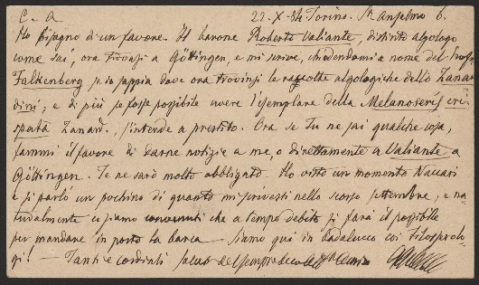 C. A. 22-X-84 Torino. St Anselmo 6.
Ho bisogno d'un favore. Il barone Roberto Valiante, distinto algologo
come sai, ora trovasi a Göttingen, e mi scrive, chiedendomi a nome del Prof
Falkenberg se io sappia dove ora trovinsi le raccolte algologiche dello Zanar-
dini; e di più se fosse possibile avere l'esemplare della Melanoseris cri-
spata Zanard. s'intende a prestito. Ora se Tu ne sai qualche cosa,
fammi il favore di darne notizie a me, o direttamente a Valiante a
Göttingen. Te ne sarò molto obbligato. Ho visto un momento Naccari
e si parlò un pochino di quanto mi scrivesti nello scorso settembre, e na-
turalmente ci siamo convenuti che a tempo debito si farà il possibile
per mandare in porto la barca. Siamo qui in coi Fillosserolo-
gi! — Tanti e cordiali saluti